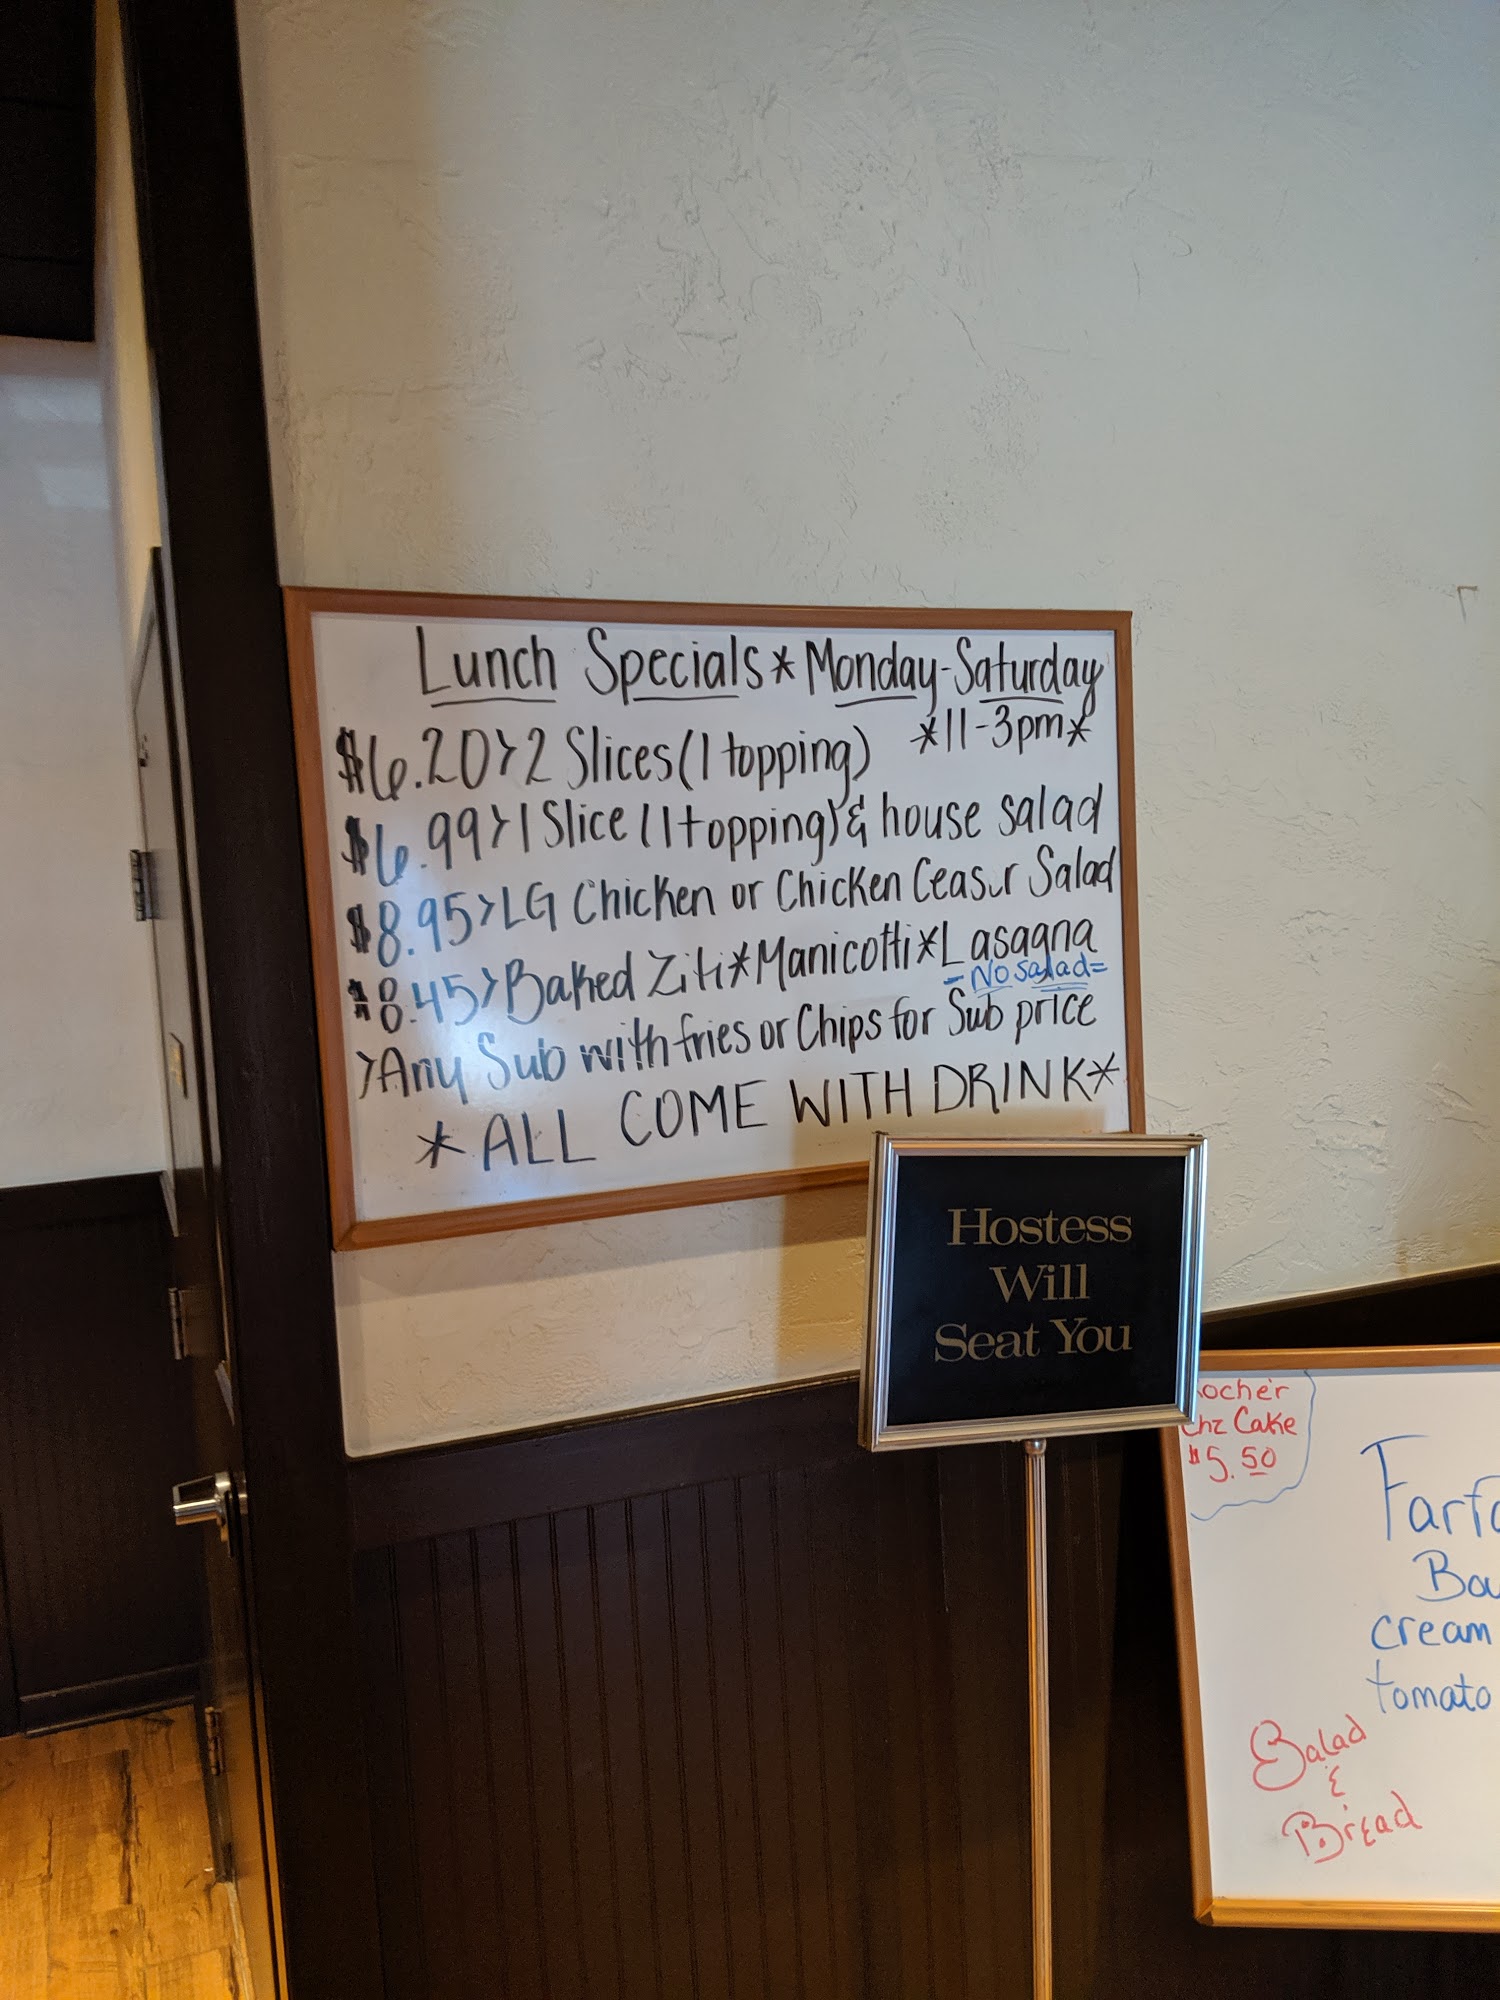 Lunch Specials * Monday-Saturday
*11-3pm*
$6.20>2 Slices (1 topping)
$6.99>1 Slice (1 topping) & house salad
$8.95>LG Chicken or Chicken Ceasur Salad
$8.45>Baked Ziti*Manicotti*Lasagna
-No salad=
>Any Sub with fries or Chips for Sub price
*ALL COME WITH DRINK*
Hostess
Will
Seat You
ocher
chz Cake
$5.50
Farfa
Bow
cream
tomato
Salad
&
Bread